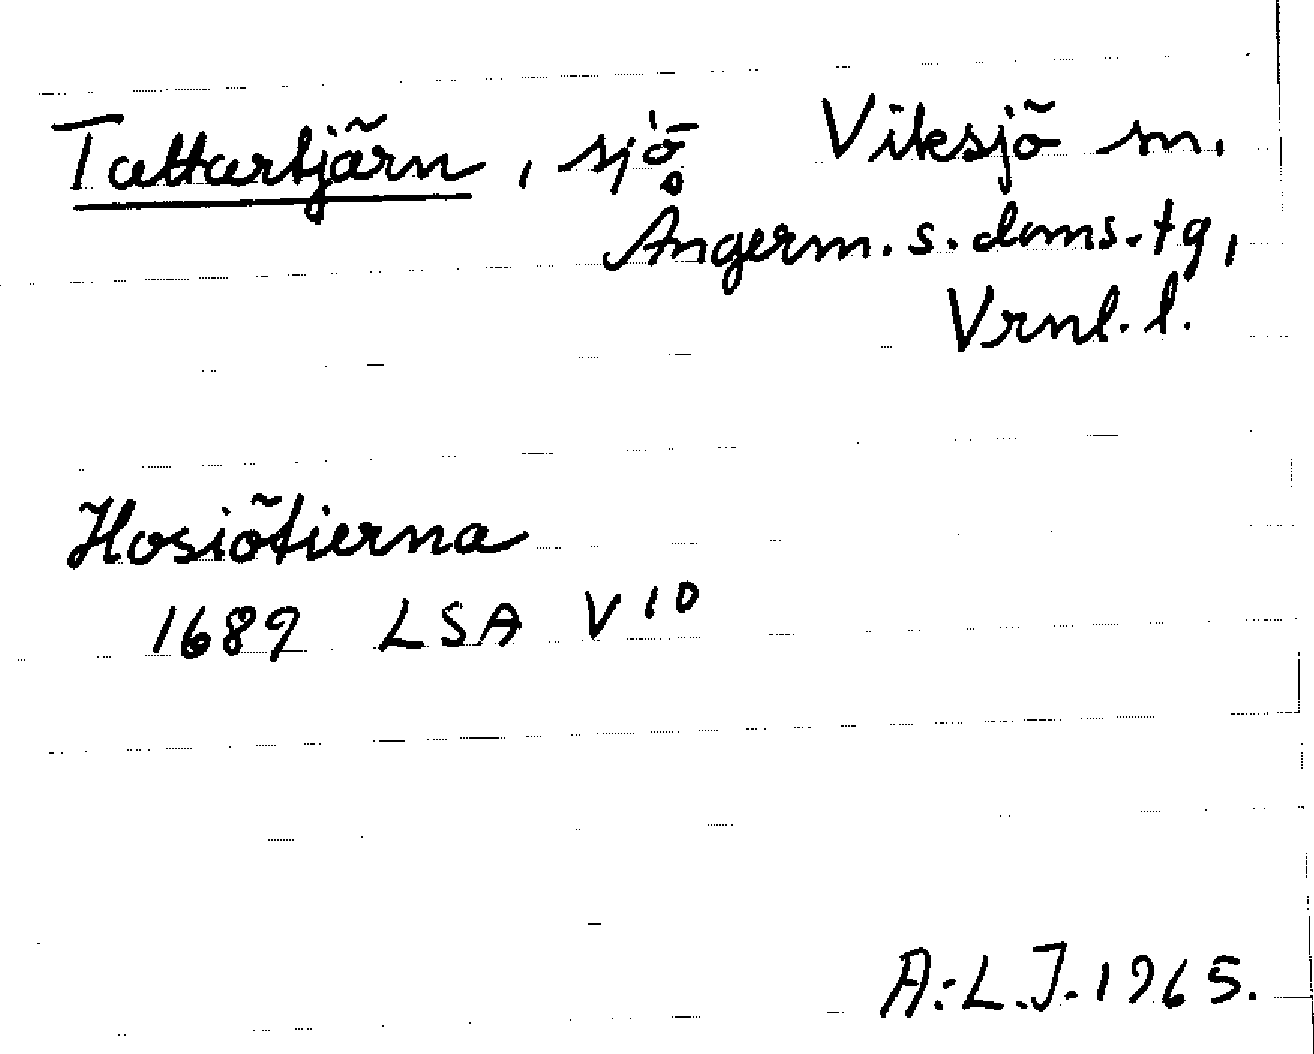 Tattartjärn, sjö Viksjö sn.
Ångerm. s. doms. tg,
Vrnl. l.
Hosiötierna
1689 LSA V 10
A.-L.J. 1965.